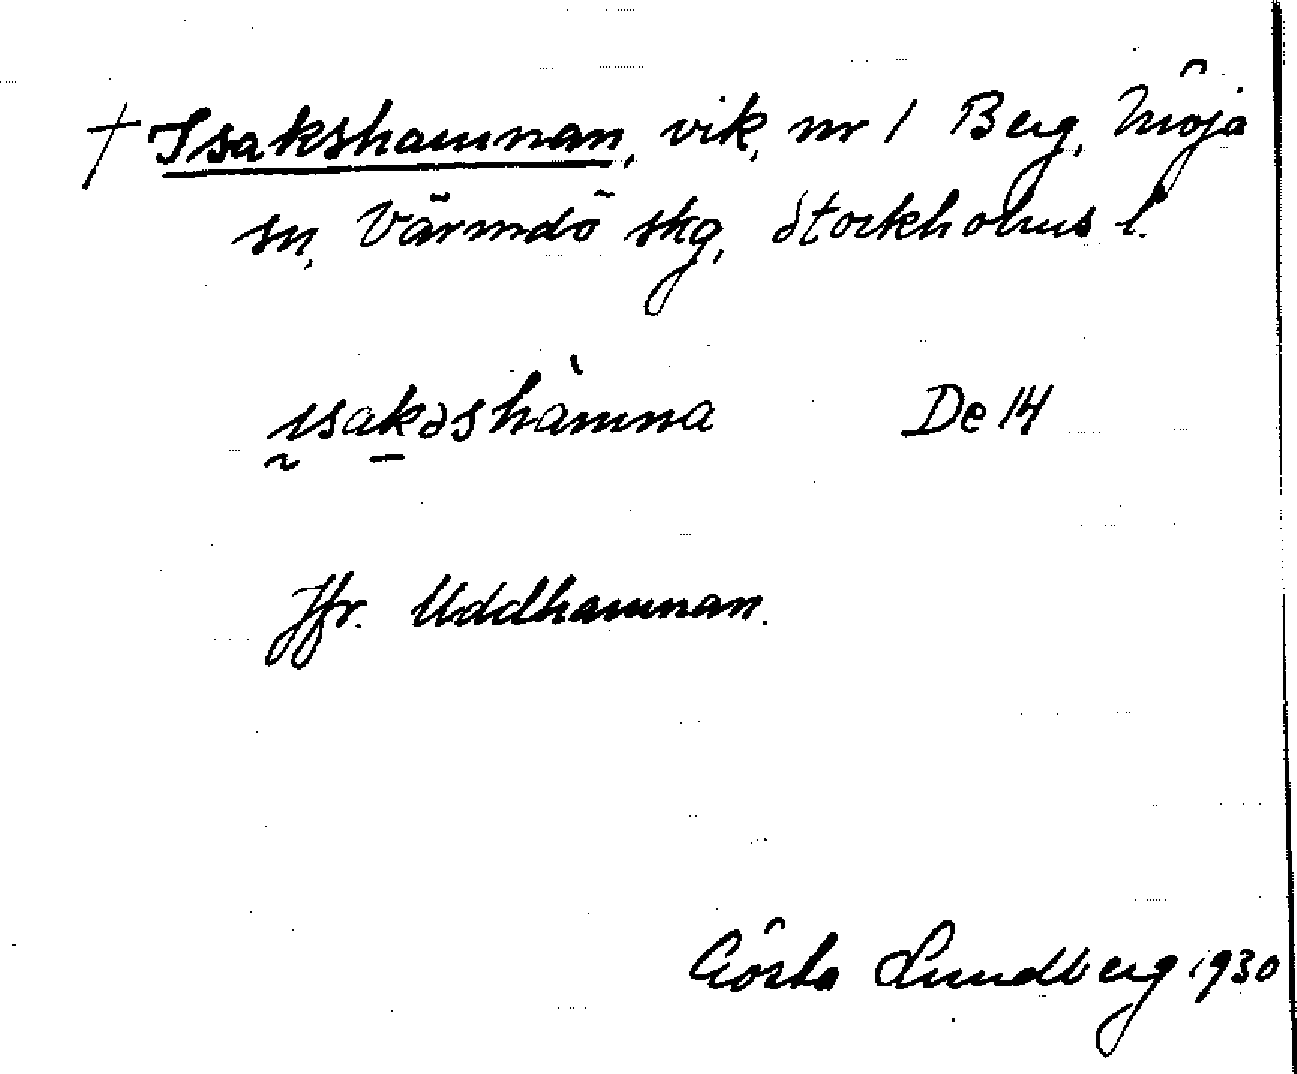 † Isakshamnan, vik, nr 1 Berg, Möja
sn, Värmdö skg, Stockholms l.
ısakəshàmna De 14
Jfr. Uddhamnan.
Gösta Lundberg 1930